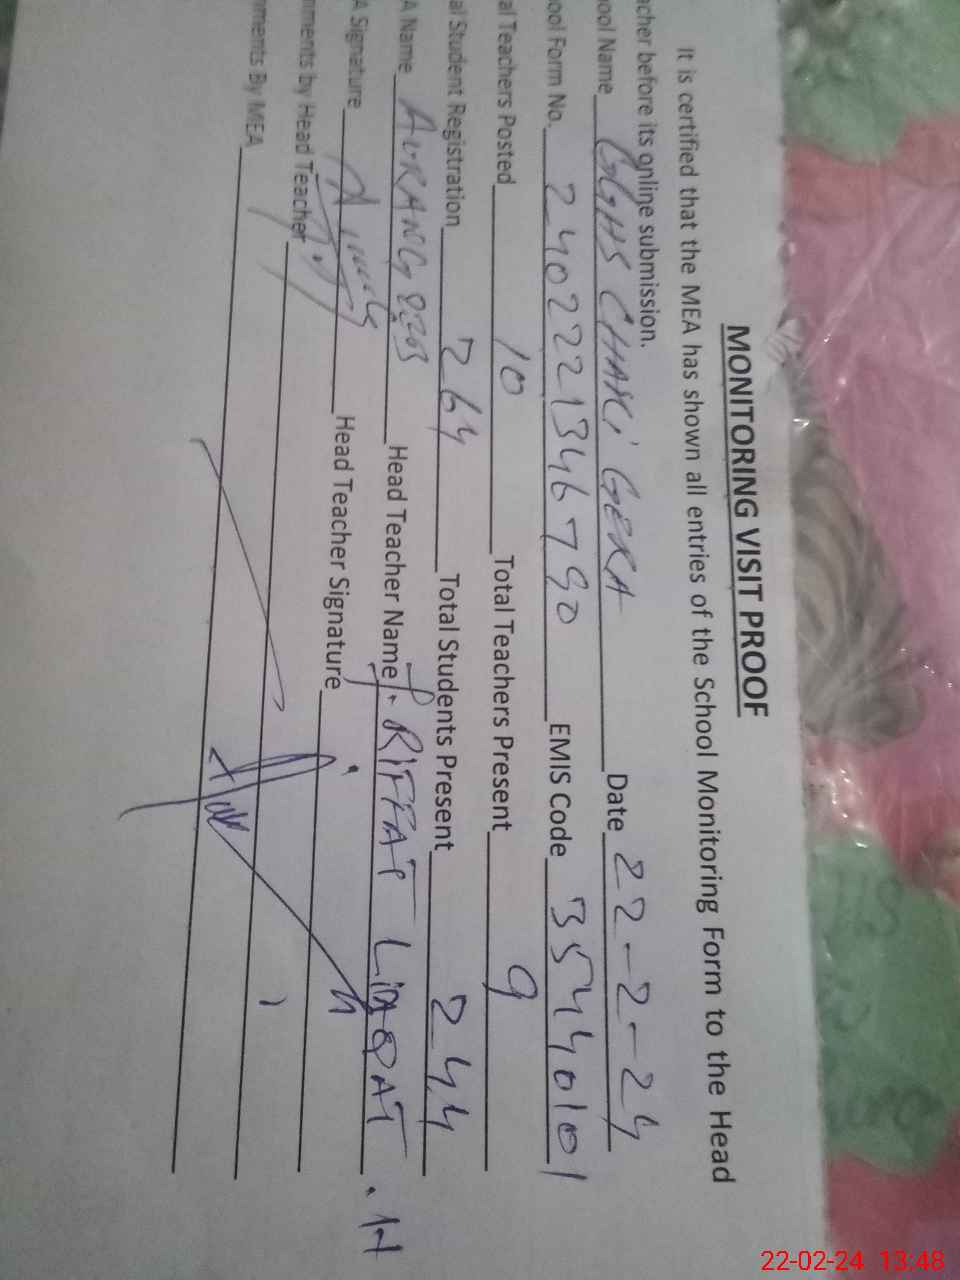 MONITORING VISIT PROOF
It is certified that the MEA has shown all entries of the School Monitoring Form to the Head
acher before its online submission.
ool Name GGHS CHAK Date 22-2-24
ool Form No. 2402221346790 EMIS Code 35440101
al Teachers Posted 10 Total Teachers Present 9
al Student Registration 264 Total Students Present 244
A Name Head Teacher Name RIFFAT LIAQAT
A Signature Head Teacher Signature
nments by Head Teacher
nments By MEA
22-02-24 13:48